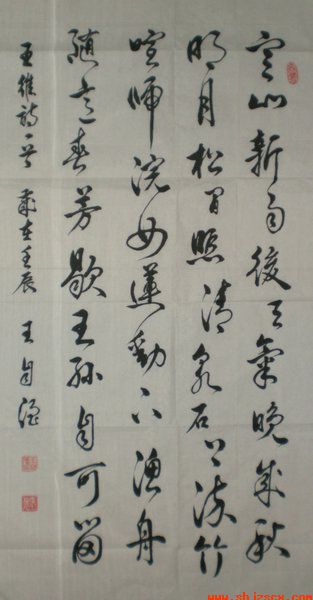 空山新雨後天氣晚來秋
明月松間照清泉石上流竹
喧歸浣女蓮動下漁舟
隨意春芳歇王孫自可留
王維詩一首 歲在壬辰 王自